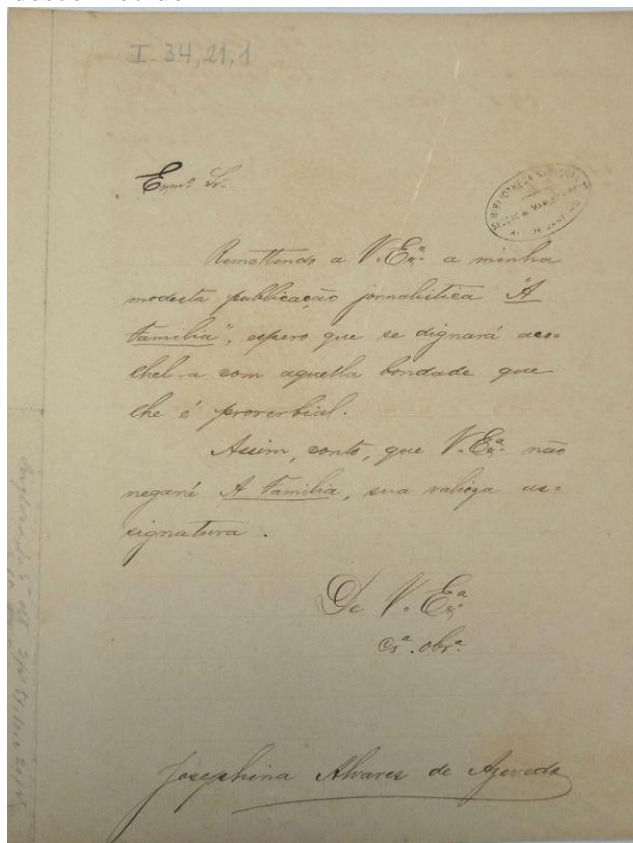 I-34,21,1
Exmº Sr.
BIBLIOTHECA NACIONAL
RIO DE JANEIRO
Remettendo a V. Exª a minha
modesta publicação jornalistica "A
Familia", espero que se dignará aco=
lhel-a com aquella bondade que
lhe é proverbial.
Assim, conto, que V. Exª não
negará A Familia, sua valioza as=
signatura.
De V. Exª
crª. obrª.
Josephina Alvares de Azevedo